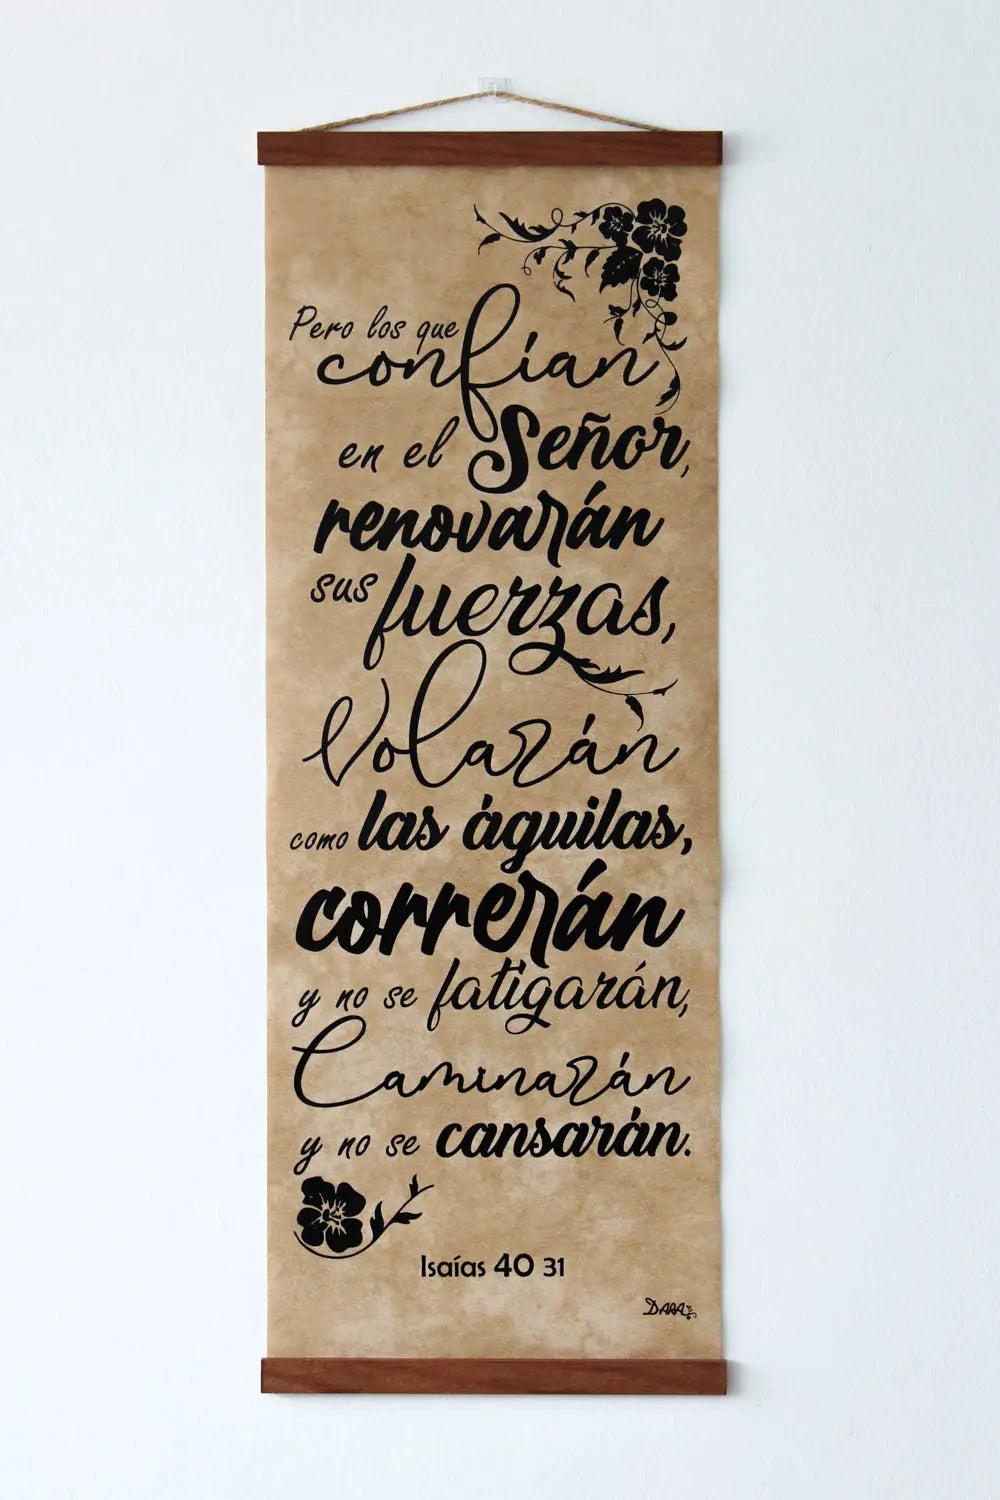 Pero los que
confían
en el Señor,
renovarán
sus fuerzas,
Volarán
como las águilas,
correrán
y no se fatigarán,
Caminarán
y no se cansarán.
Isaías 40 31
DARA